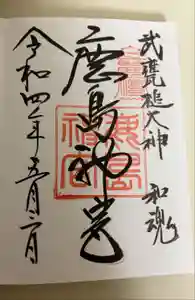 武甕槌大神 和魂
鹿島神宮
令和四年五月一日
鹿島神宮